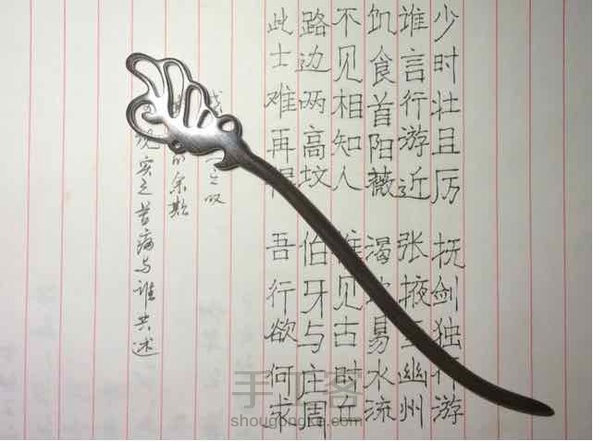 少时壮且厉 抚剑独行游
谁言行游近 张掖幽州
饥食首阳薇 渴易水流
不见相知人 见古时丘
路边两高坟 伯牙与庄周
此士难再得 吾行欲何求
之叹
的余欺
现实之苦痛与谁共述
手工客
shougongke.com